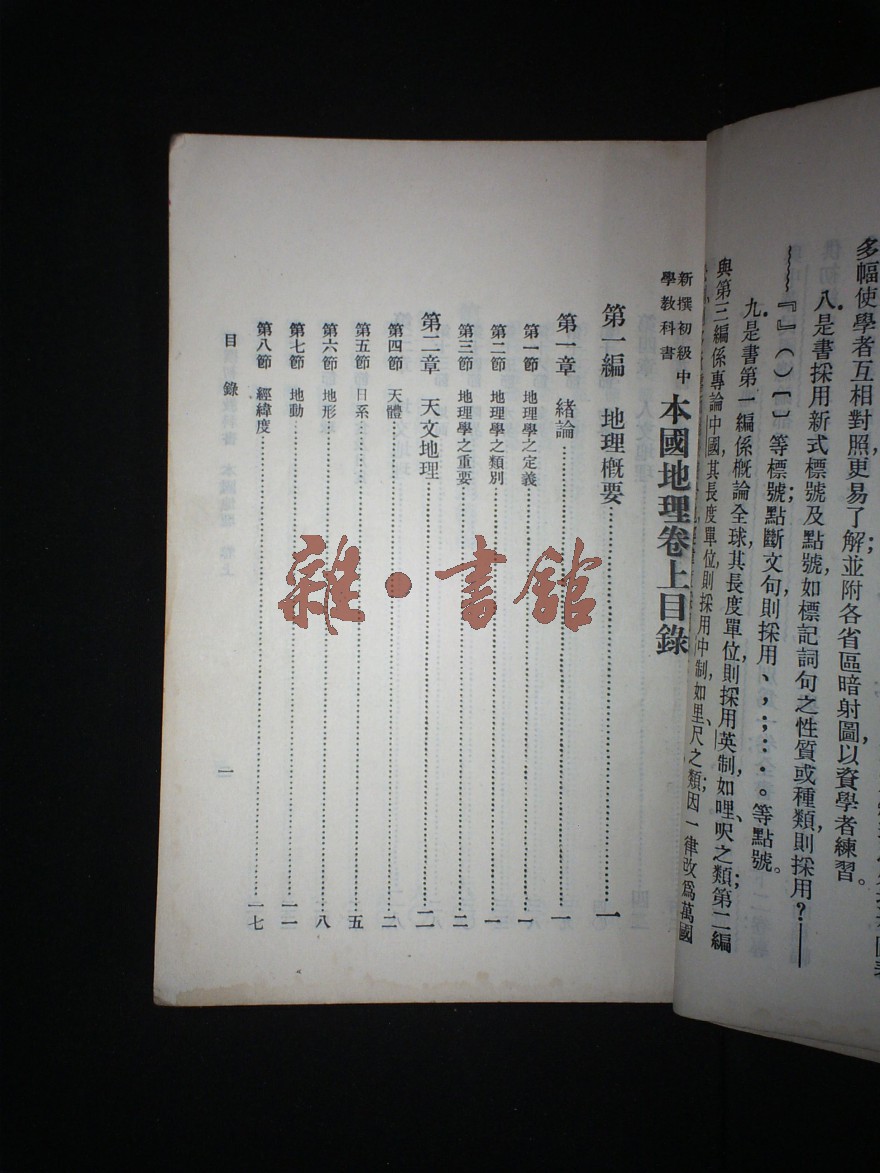 多幅使學者互相對照更易了解並附各省區暗射圖以資學者練習。
八是書採用新式標號及點號如標記詞句之性質或種類則採用？——
～～～『』（）〔〕等標號點斷文句則採用、，；：．。等點號。
九是書第一編係概論全球其長度單位則採用英制，如哩、呎之類；第二編
與第三編係專論中國其長度單位則採用中制，如里、尺之類；因一律改爲萬國
新撰初級中
學教科書
本國地理卷上目錄
第一編 地理概要……一
第一章 緒論……一
第一節 地理學之定義……一
第二節 地理學之類別……一
第三節 地理學之重要……二
第二章 天文地理……二
第四節 天體……二
第五節 日系……五
第六節 地形……八
第七節 地動……一一
第八節 經緯度……一七
目錄
一
雜·書館